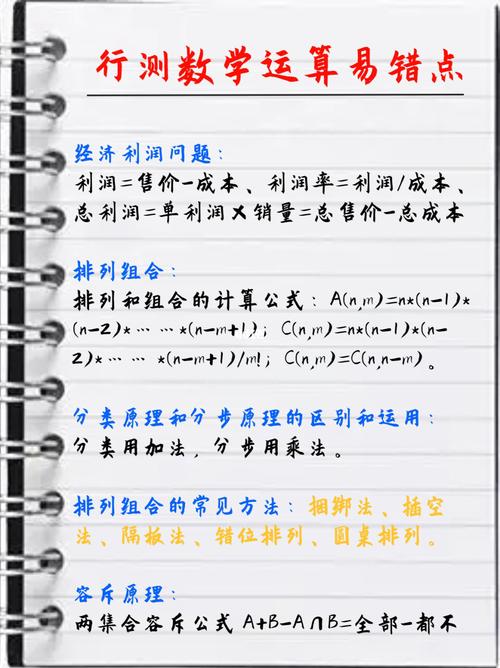 行测数学运算易错点
经济利润问题：
利润=售价-成本、利润率=利润/成本、
总利润=单利润×销量=总售价-总成本
排列组合：
排列和组合的计算公式：A(n,m)=n*(n-1)*
(n-2)*… …*(n-m+1)；C(n,m)=n*(n-1)*(n-
2)*… … *(n-m+1)/m!；C(n,m)=C(n,n-m)。
分类原理和分步原理的区别和运用：
分类用加法，分步用乘法。
排列组合的常见方法：捆绑法、插空
法、隔板法、错位排列、圆桌排列。
容斥原理：
两集合容斥公式 A+B-A∩B=全部-都不